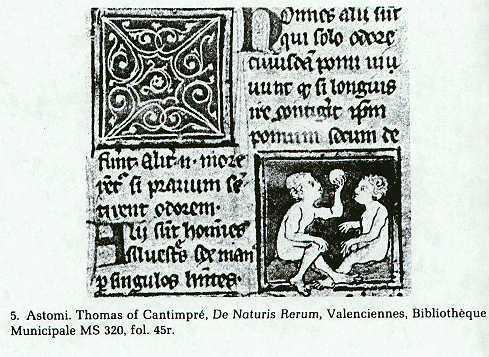 Hoīnes alii sūt
qui solo odore
cuiusdā pomi uiu
uunt q si longius
ire contigit ipm
pomum secum de
funt. Alit' .n. more
rēt' si prauum sē
tirent odorem.
Alij sūt hoīnes
siluest's sex man'
p singulos hn̄tes.
5. Astomi. Thomas of Cantimpré, De Naturis Rerum, Valenciennes, Bibliothèque
Municipale MS 320, fol. 45r.